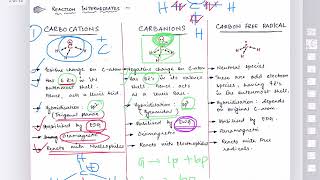 REACTION INTERMEDIATES
CARBOCATIONS
CARBANIONS
CARBON FREE RADICAL
Positive charge on C-atom
Has 6 e⁻s in its
outermost shell. Hence
act a lewis acid
Hybridisation: sp²
(Trigonal Planar)
Stabilised by EDG
Diamagnetic
Reacts with Nucleophiles
Negative charge on C-atom
Has 8 e⁻s in its valence
shell. Hence acts
a lewis base
Hybridisation: sp³
(Pyramidal)
Stabilised by EWG
Diamagnetic
Reacts with Electrophiles
Neutral species
These are odd electron
species, having 7 e⁻s
in the outermost shell.
Hybridisation: depends
on original C-atom.
Stabilised by
Paramagnetic
Reacts with free
radicals.
lp + bp
H
H
H